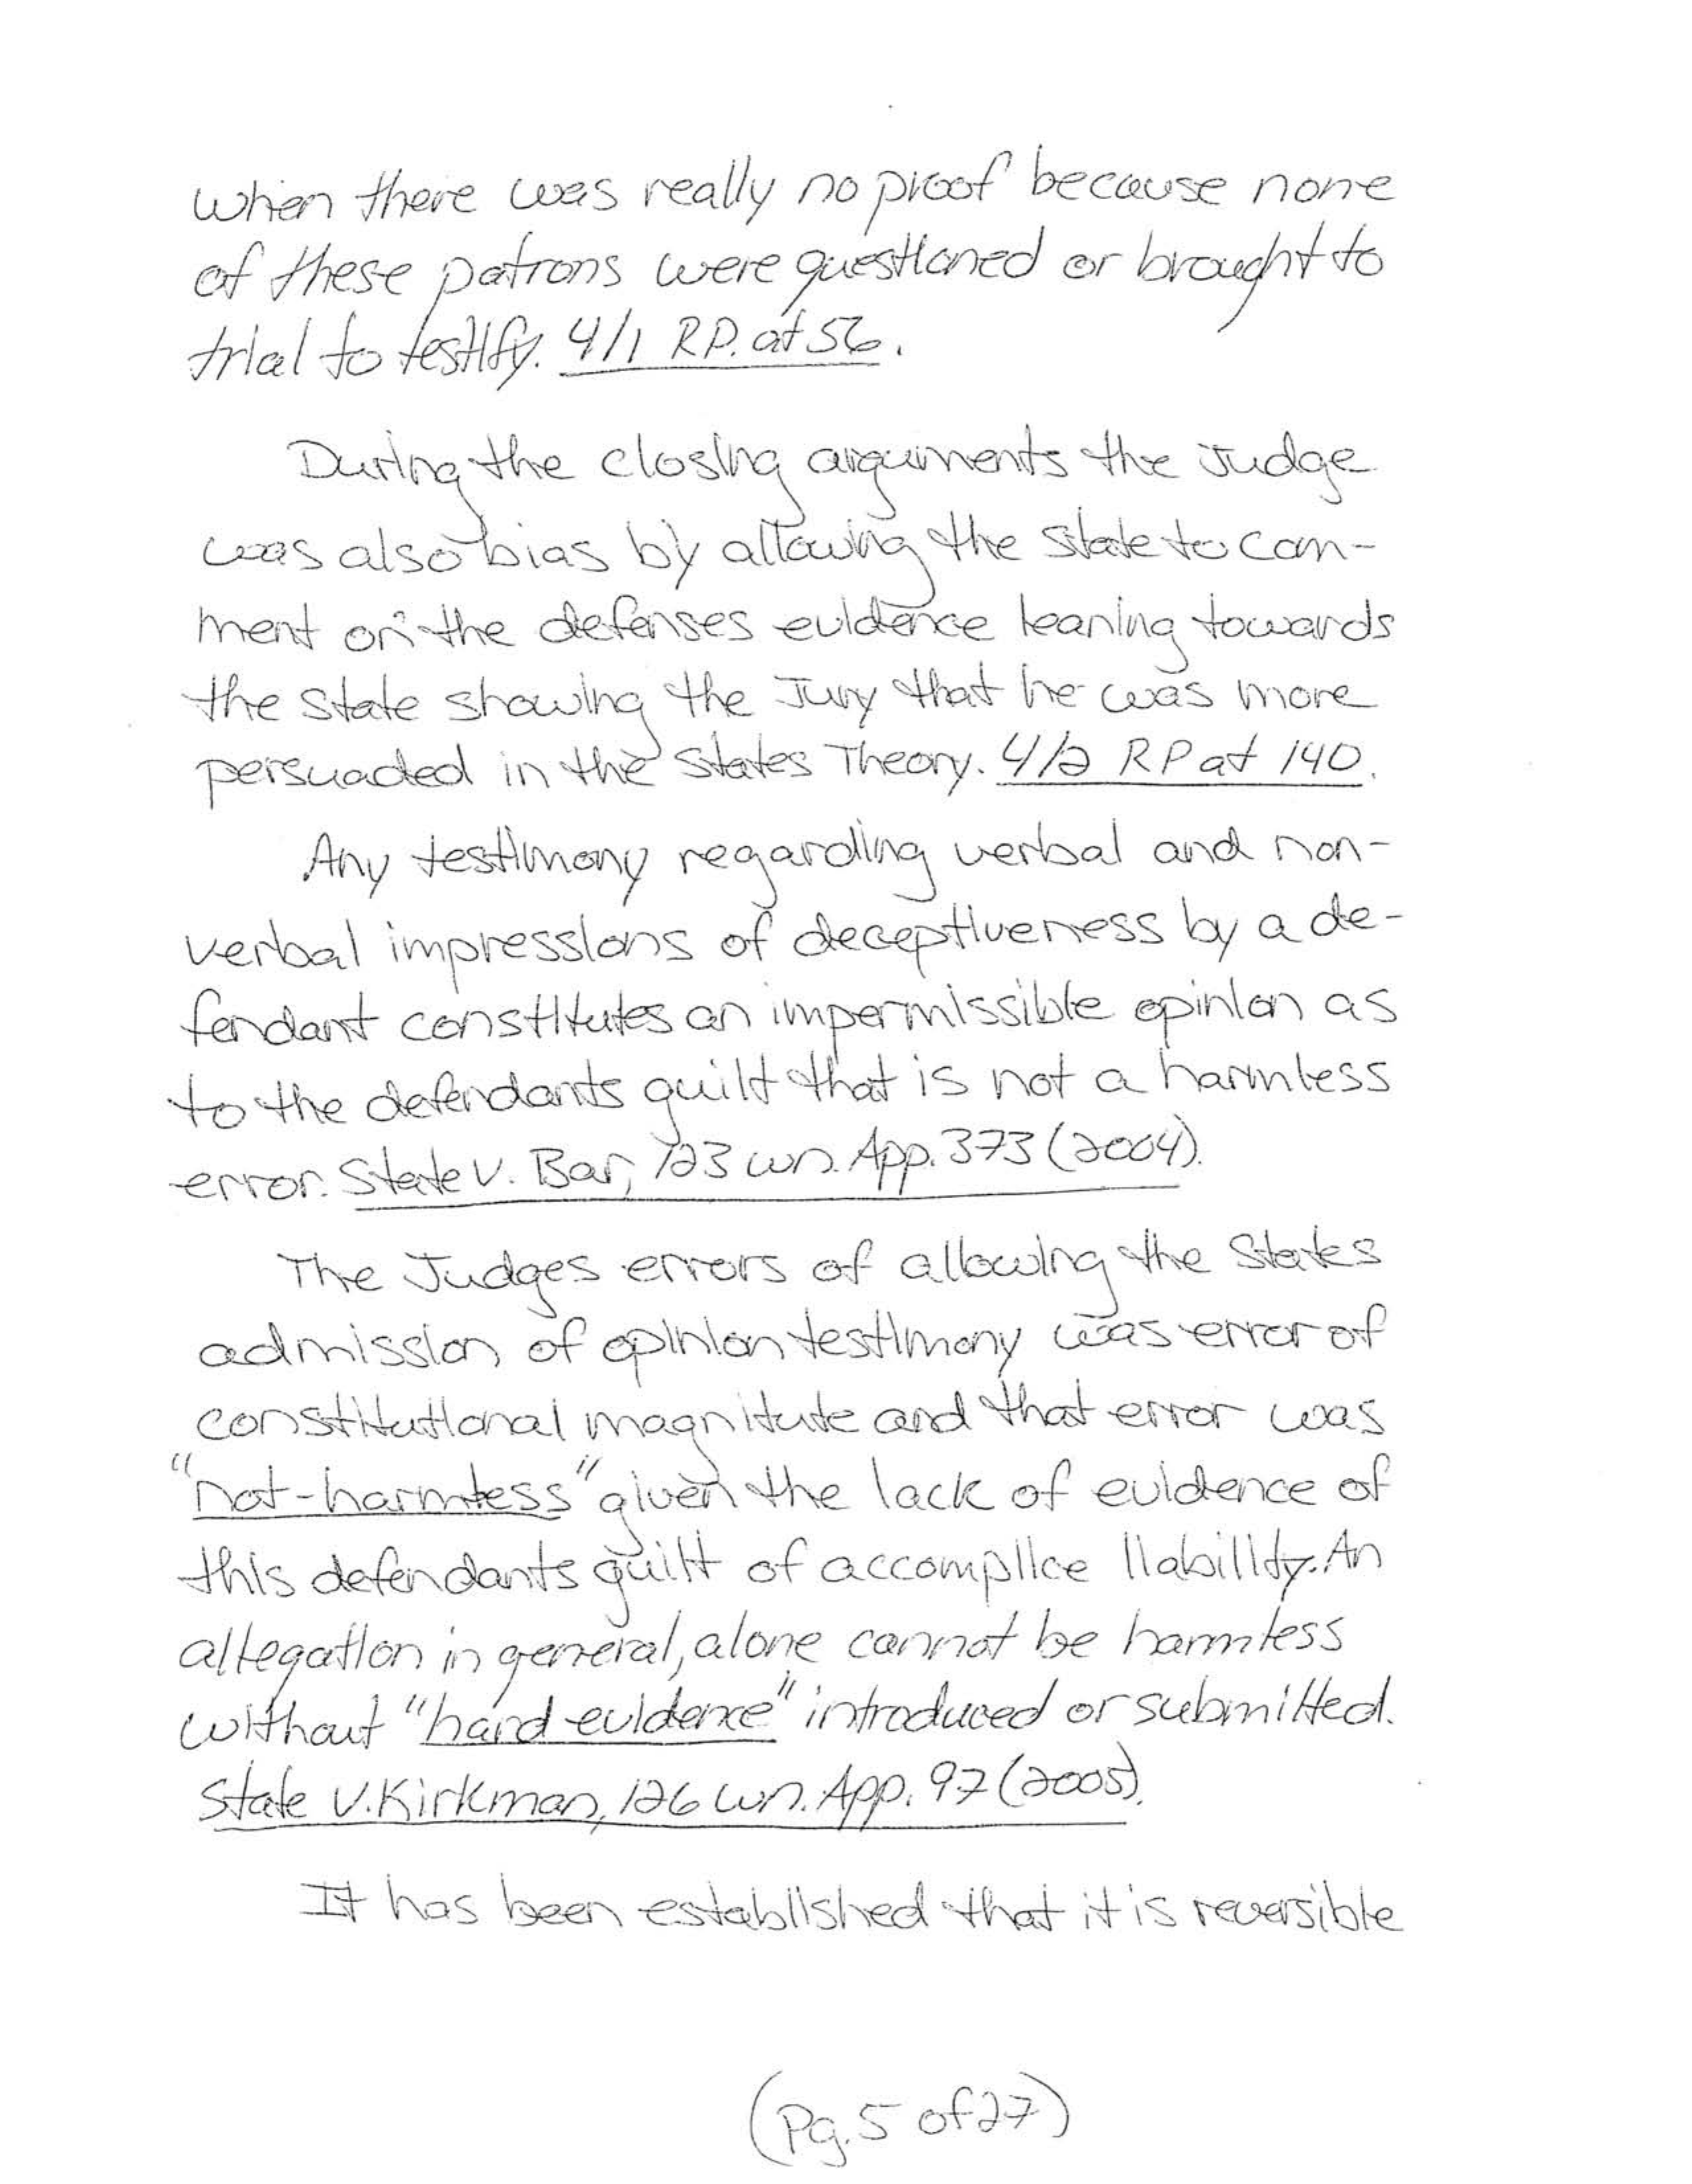 when there was really no proof because none
of these patrons were questioned or brought to
trial to testify. 4/1 RP. at 56.
During the closing arguments the Judge
was also bias by allowing the state to com-
ment on the defenses evidence leaning towards
the state showing the Jury that he was more
persuaded in the States Theory. 4/2 RP at 140.
Any testimony regarding verbal and non-
verbal impressions of deceptiveness by a de-
fendant constitutes an impermissible opinion as
to the defendants guilt that is not a harmless
error. State v. Bar, 123 wn. App. 373 (2004).
The Judges errors of allowing the States
admission of opinion testimony was error of
constitutional magnitute and that error was
"not-harmless" given the lack of evidence of
this defendants guilt of accomplice liability. An
allegation in general, alone cannot be harmless
without "hard evidence" introduced or submitted.
State v. Kirkman, 126 wn. App. 97 (2005).
It has been established that it is reversible
(Pg. 5 of 27)